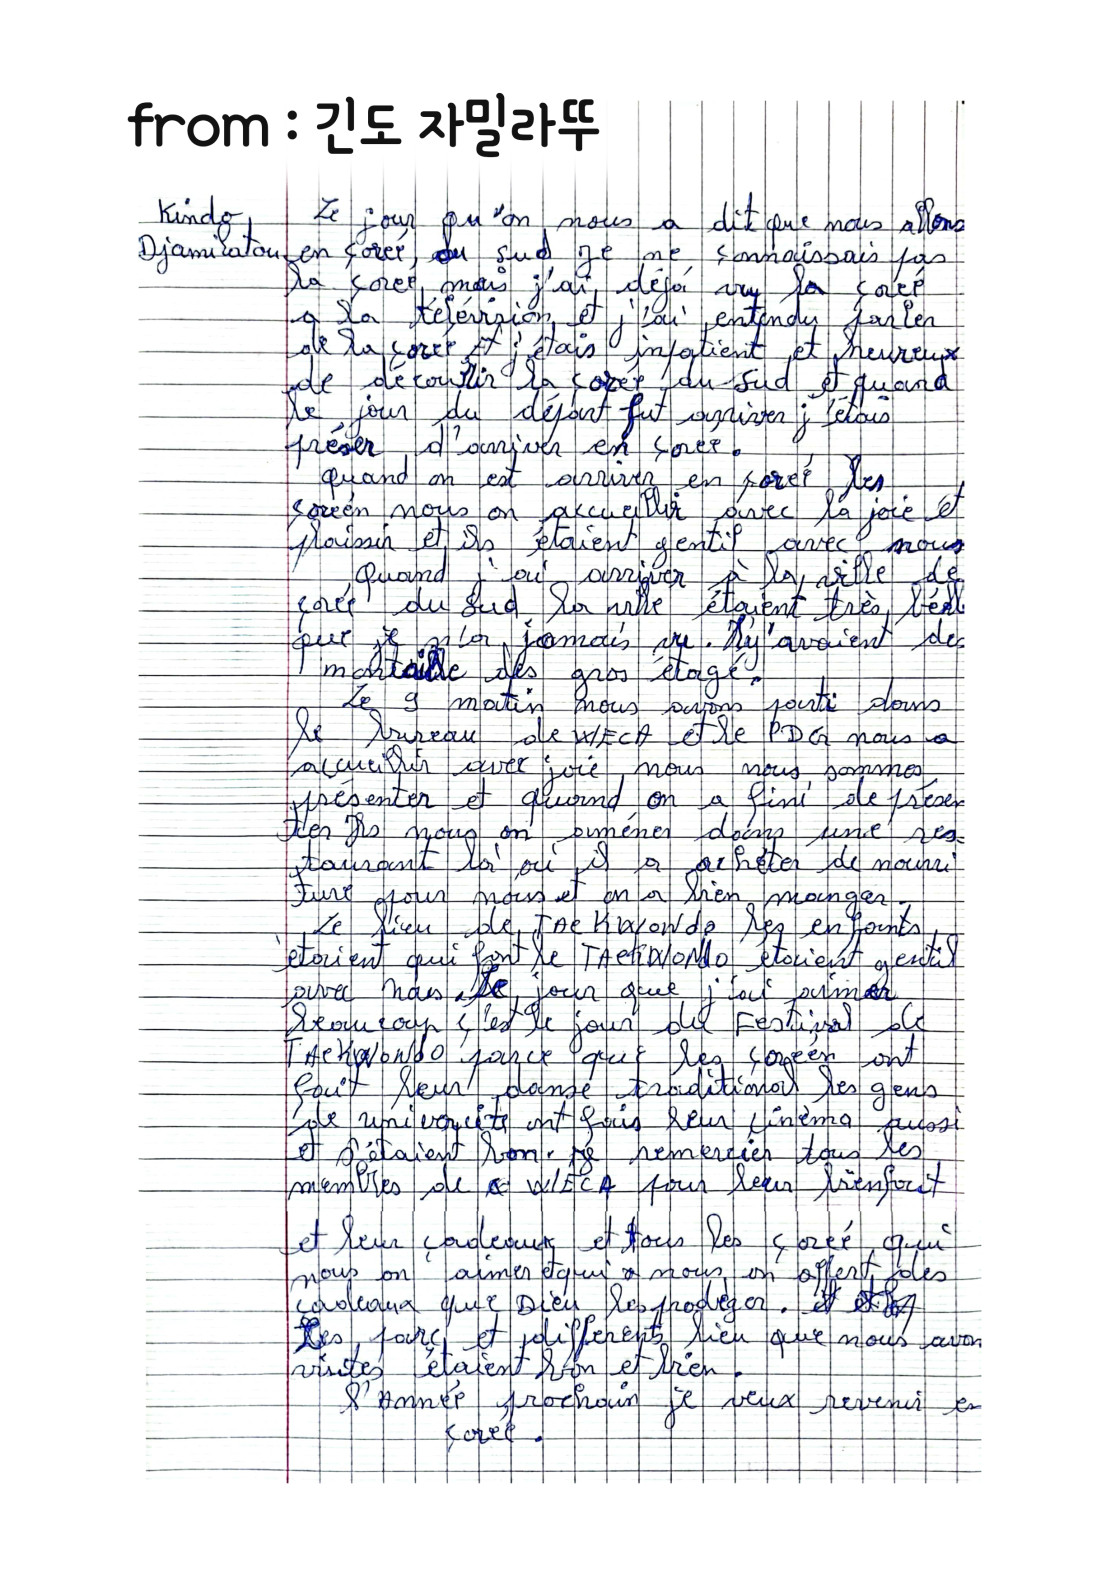 from : 긴도 자밀라뚜
Kindo
Djamilatou
Le jour qu'on nous a dit que nous allons
en çoreé, du sud je ne çonnaissais pas
la çoreé, mais j'ai déjá vu la çoreé
a la télévision et j'ai entendu parler
de la çoreé et j'étais inpatient et heureux
de découvrir la çoreé du Sud et quand
le jour du départ fut arriver j'étais
préser d'arriver en çoreé.
quand on est arriver en çoreé les
çoreén nous on accueillir avec la joie et
plaissir et ils étaient gentil avec nous
Quand j'ai arriver à la ville de
çoreé du Sud la ville étaient très béal
que je n'a jamais vu. Ily'avaient des
montaille des gros étagé.
Le 9 matin nous avons parti dans
le bureau de WECA et le PDG nous a
accueillir avec joie nous nous sommes
présenter et quand on a fini de présen
ter Ils nous on améner dans une res-
taurant là où il a achéter de nourri
ture pour nous et on a bien manger.
Le lieu de TAEKWONDO les enfants
étaient qui font le TAEKWONDO étaient gentil
avec nous. Le jour que j'ai aimer
beaucoup ç'est le jour du Festival de
TAEKWONDO parce que les çoreén ont
fait leur danse traditional les gens
de univercité ont fais leur cinéma aussi
et s'étaient bon. je remercier tous les
membres de WECA pour leur bienfait
et leur çadeaux et tous les çoreé qui
nous on aimer et qui nous on offert des
cadeaux que Dieu les prodèger.
Les parc et différents lieu que nous avon
visités étaient bon et bien.
L'Année prochain je veux revenir en
çoreé.